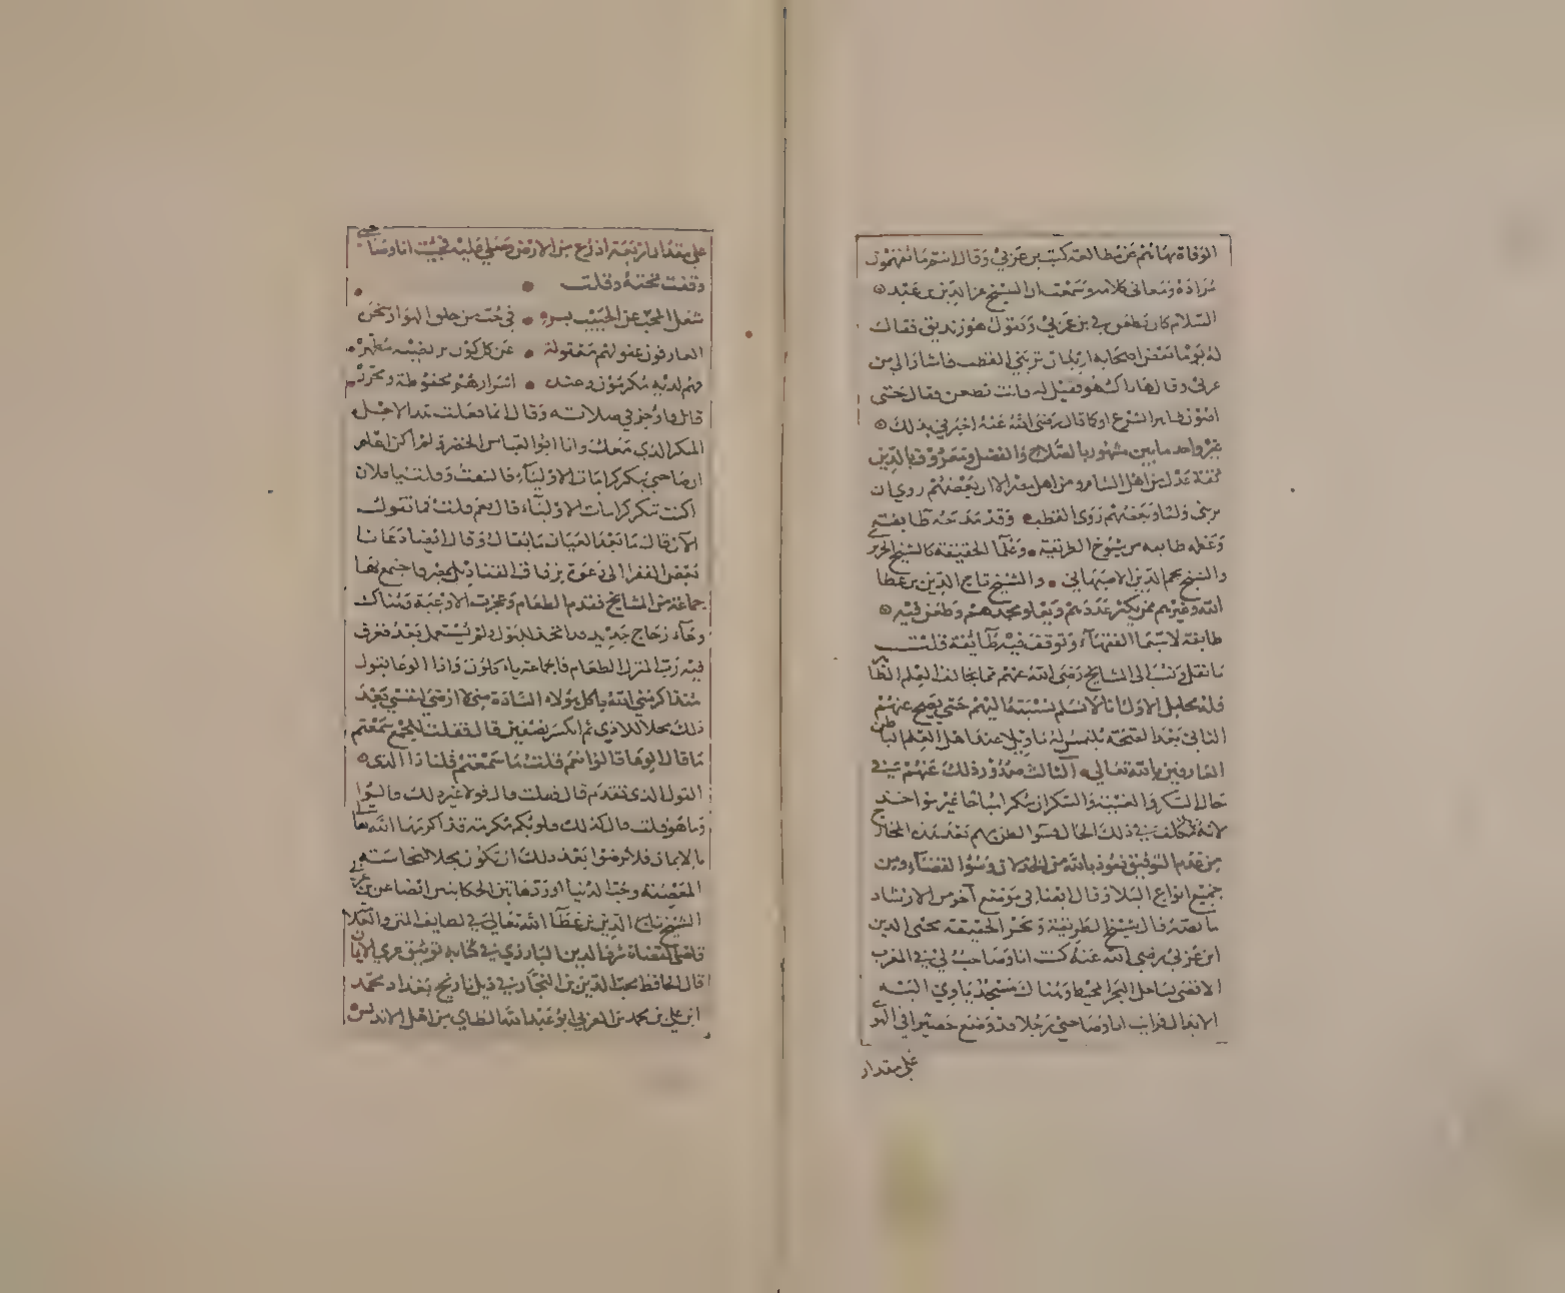 الوفاة نهاتم عن مطالعة كتب بن عربي وقال انتم ما تفهمون
مراده ومعاني كلامه وسمعت ان الشيخ عز الدين بن عبد
السلام كان يطعن في بن عربي ويقول هو زنديق فقال
له يوما بعض اصحابه اريد ان تريني القطب فاشار الى بن
عربي وقال هذاك هو فقيل له فانت تطعن فقال حتى
اصون ظاهر الشرع او كما قال رضي الله عنه اخبرني بذلك
غير واحد ما بين مشهور بالصلاح والفضل ومعروف بالدين
ثقة عدل من اهل الشام ومن اهل مصر الا ان بعضهم روى ان
تريني وليا وبعضهم روى القطب وقد مدحه طايفة
وعظمه طايفة من شيوخ الطريقة وعلما الحقيقة كالشيخ الحرير
والشيخ نجم الدين الاصبهاني والشيخ تاج الدين بن عطا
الله وغيرهم ممن يكثر عددهم ويعلو مجدهم وطعن فيه
طايفة لا سيما الفقهاء وتوقف فيه طائفة قلت
ما نقل ونسب الى المشايخ رضي الله عنهم مما يخالف العلم الظا
فله محامل الاول انا لا نسلم نسبته اليهم حتى يصح عنهم
الثاني بعد الصحة يلتمس له تاويل عند اهل العلم الباطن
العارفين بالله تعالى الثالث صدور ذلك عنهم في
حال السكر والغيبة والسكران سكرا مباحا غير مواخذ
لانه غير مكلف في ذلك الحال فسوا الظن بهم بعد هذه المخارج
من عدم التوفيق نعوذ بالله من الخذلان وسوا القضاء ومن
جميع انواع البلا وقال ايضا في موضع آخر من الارشاد
ما نصه قال الشيخ الطريقة وبحر الحقيقة محيي الدين
ابن عربي رضي الله عنه كنت انا وصاحب لي في المغرب
الاقصى بساحل البحر المحيط وهناك مسجد ياوي اليه
الابدال فرايت انا وصاحبي رجلا قد وضع حصيرا في الهو
على مقدار
على مقدار اربعة اذرع من الارض وصلى عليه فجيت انا وصاحبي
وقفت تحته وقلت
شغل المحب عن الحبيب بسره في حب من خلق الهوا وسخره
العارفون عقولهم معقولة عن كل كون ترتضيه مطهره
فهم لديه مكرمون وعنده اسرارهم محفوظة ومحرره
قال فاوجز في صلاته وقال انما فعلت هذا لاجل
المنكر الذي معك وانا ابو العباس الخضر ولم اكن اعلم
ان صاحبي ينكر كرامات الاولياء فالتفت وقلت يا فلان
اكنت تنكر كرامات الاولياء قال نعم قلت فما تقول
الآن قال ما بعد العيان ما يقال وقال ايضا دعانا
بعض الفقرا الى دعوة بزقاق القناديل بمصر فاجتمع بها
جماعة من المشايخ فقدم الطعام وعجزت الاوعية وهناك
وعاء زجاج جديد قد اتخذ للبول ولم يستعمل بعد فغرف
فيه رب المنزل الطعام فالجماعة ياكلون واذا الوعا يقول
منذ اكرمني الله باكل هؤلاء السادة مني لا ارضى لنفسي بعد
ذلك محلا للاذي ثم انكسر نصفين قال فقلت للجميع سمعتم
ما قال الوعا قالوا نعم قلت ما سمعتم قلنا ذا الذي
القول الذي تقدم قال فقلت قال قولا غير ذلك قالوا
وما هو قلت قال كذلك قلوبكم مكرمة قد اكرمها الله تعالى
بالايمان فلا ترضوا بعد ذلك ان تكون محلا لنجاسة
المعصية وحب الدنيا اورد هاتين الحكايتين ايضا عن بن عربي
الشيخ تاج الدين بن عطا الله تعالى في لطايف المنن والعلا
قاضي القضاة شرف الدين البارزي في كتابه توثيق عري الايمان
قال الحافظ محب الدين بن النجار في ذيل تاريخ بغداد محمد
ابن علي بن محمد بن العربي ابو عبد الله الطاي من اهل الاندلس